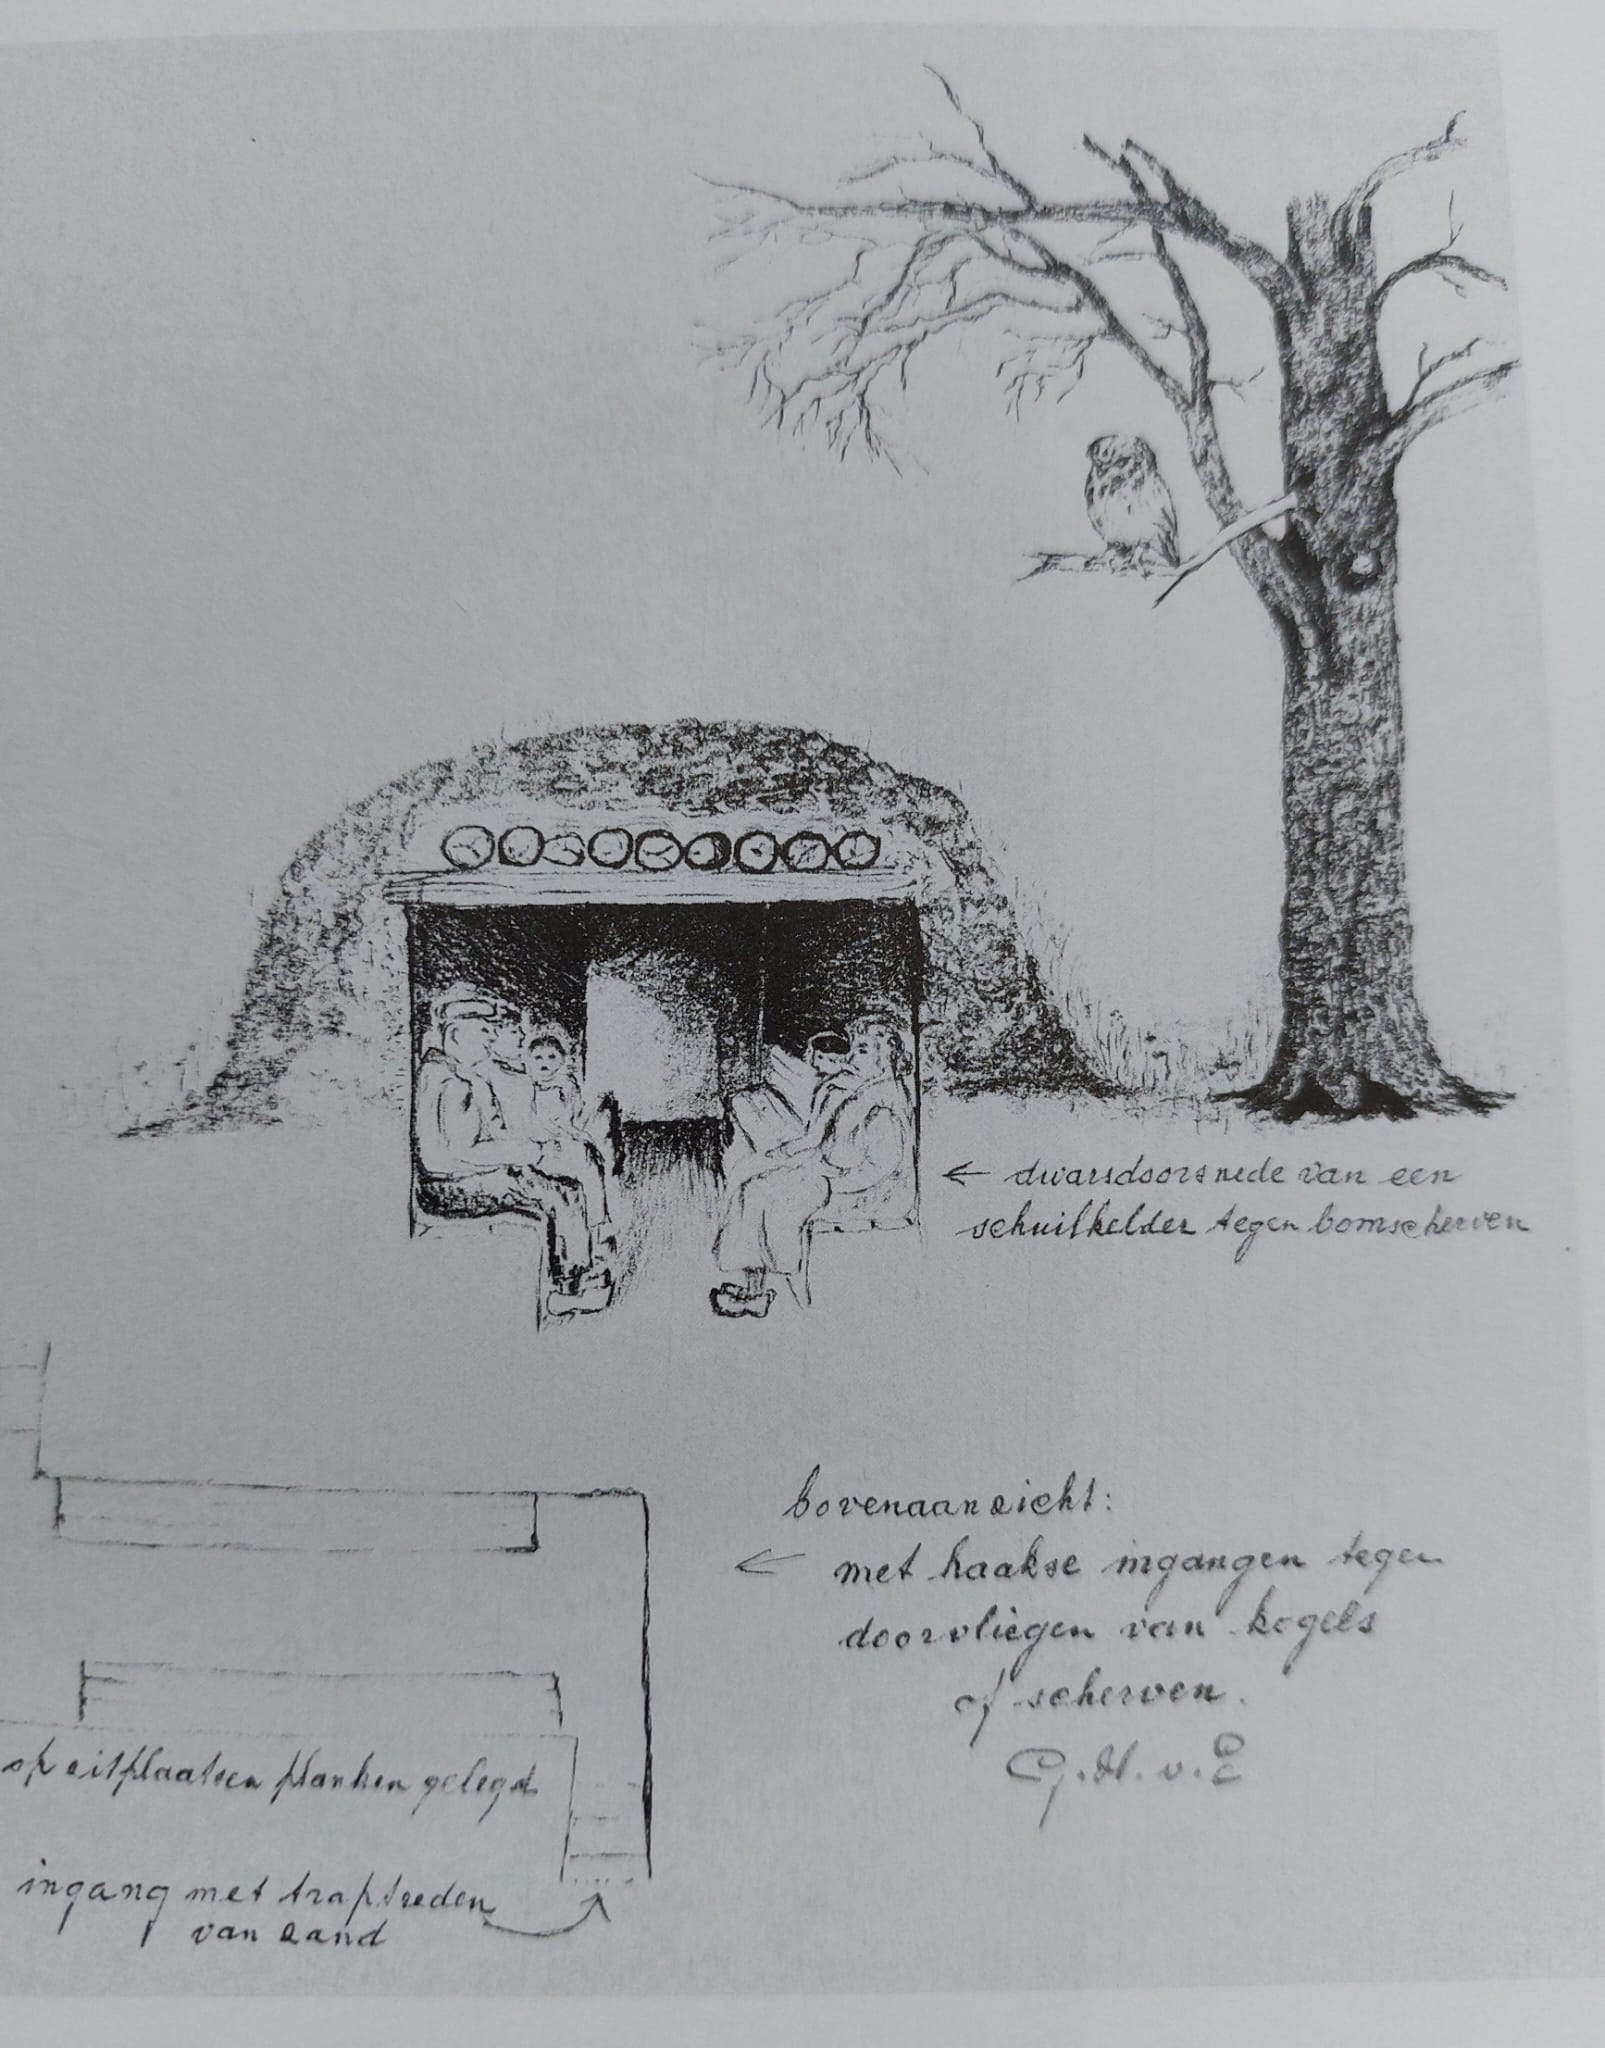 ← dwarsdoorsnede van een
schuilkelder tegen bomscherven
bovenaanzicht:
← met haakse ingangen tegen
doorvliegen van kogels
of scherven.
G.H.v.E
op zitplaatsen planken gelegd
ingang met traptreden
van zand